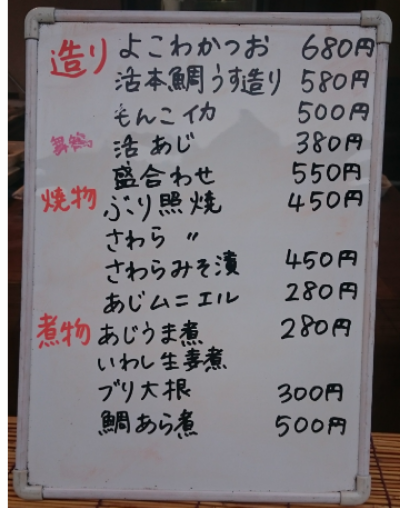 造り よこわかつお 680円
活本鯛うす造り 580円
もんこイカ 500円
舞鶴 活あじ 380円
盛合わせ 550円
焼物 ぶり照焼 450円
さわら 〃
さわらみそ漬 450円
あじムニエル 280円
煮物 あじうま煮 280円
いわし生姜煮
ブリ大根 300円
鯛あら煮 500円